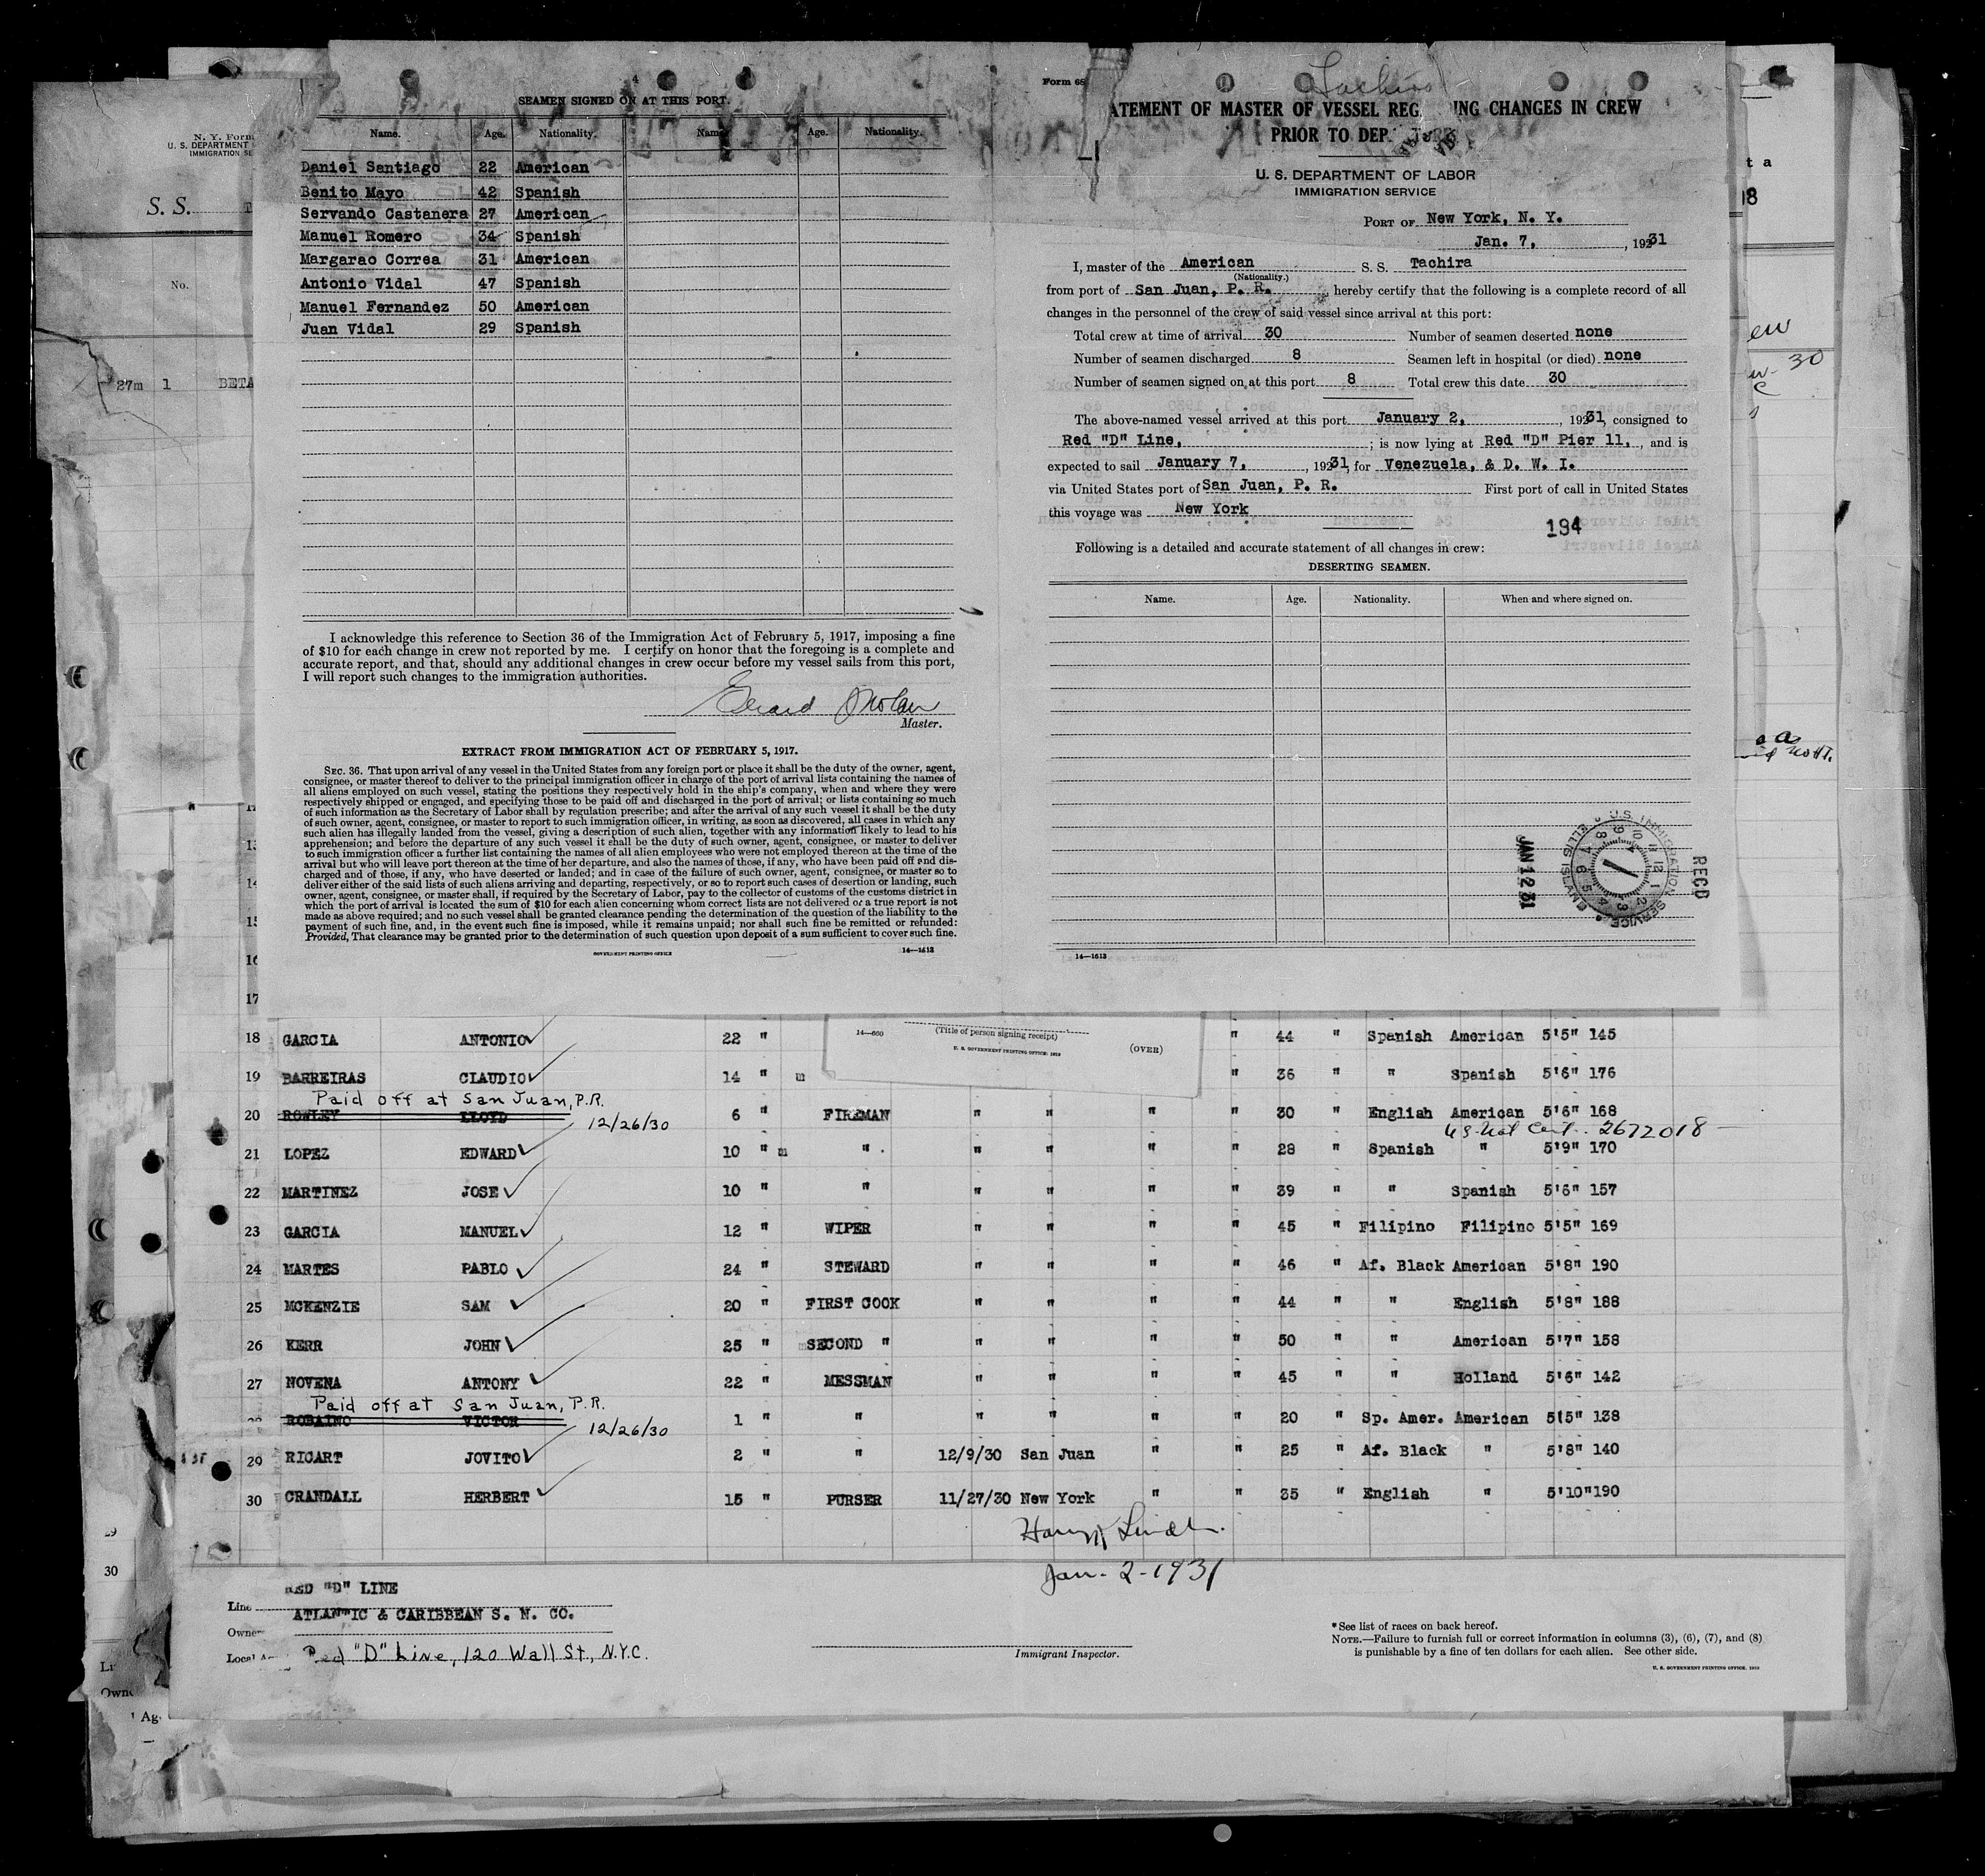 4
SEAMEN SIGNED ON AT THIS PORT.
Name. Age. Nationality. Name. Age. Nationality.
Daniel Santiago 22 American
Benito Mayo 42 Spanish
Servando Castanera 27 American
Manuel Romero 34 Spanish
Margarao Correa 31 American
Antonio Vidal 47 Spanish
Manuel Fernandez 50 American
Juan Vidal 29 Spanish
I acknowledge this reference to Section 36 of the Immigration Act of February 5, 1917, imposing a fine
of $10 for each change in crew not reported by me. I certify on honor that the foregoing is a complete and
accurate report, and that, should any additional changes in crew occur before my vessel sails from this port,
I will report such changes to the immigration authorities.
Master.
EXTRACT FROM IMMIGRATION ACT OF FEBRUARY 5, 1917.
SEC. 36. That upon arrival of any vessel in the United States from any foreign port or place it shall be the duty of the owner, agent,
consignee, or master thereof to deliver to the principal immigration officer in charge of the port of arrival lists containing the names of
all aliens employed on such vessel, stating the positions they respectively hold in the ship's company, when and where they were
respectively shipped or engaged, and specifying those to be paid off and discharged in the port of arrival; or lists containing so much
of such information as the Secretary of Labor shall by regulation prescribe; and after the arrival of any such vessel it shall be the duty
of such owner, agent, consignee, or master to report to such immigration officer, in writing, as soon as discovered, all cases in which any
such alien has illegally landed from the vessel, giving a description of such alien, together with any information likely to lead to his
apprehension; and before the departure of any such vessel it shall be the duty of such owner, agent, consignee, or master to deliver
to such immigration officer a further list containing the names of all alien employees who were not employed thereon at the time of the
arrival but who will leave port thereon at the time of her departure, and also the names of those, if any, who have been paid off and dis-
charged and of those, if any, who have deserted or landed; and in case of the failure of such owner, agent, consignee, or master so to
deliver either of the said lists of such aliens arriving and departing, respectively, or so to report such cases of desertion or landing, such
owner, agent, consignee, or master shall, if required by the Secretary of Labor, pay to the collector of customs of the customs district in
which the port of arrival is located the sum of $10 for each alien concerning whom correct lists are not delivered or a true report is not
made as above required; and no such vessel shall be granted clearance pending the determination of the question of the liability to the
payment of such fine, and, in the event such fine is imposed, while it remains unpaid; nor shall such fine be remitted or refunded:
Provided, That clearance may be granted prior to the determination of such question upon deposit of a sum sufficient to cover such fine.
GOVERNMENT PRINTING OFFICE 14—1613
Form 68
Tachira
ATEMENT OF MASTER OF VESSEL REG ING CHANGES IN CREW
PRIOR TO DEP
U. S. DEPARTMENT OF LABOR
IMMIGRATION SERVICE
PORT OF New York, N. Y.
Jan. 7, , 19231
I, master of the American S. S. Tachira
(Nationality.)
from port of San Juan, P. R. , hereby certify that the following is a complete record of all
changes in the personnel of the crew of said vessel since arrival at this port:
Total crew at time of arrival 30 Number of seamen deserted none
Number of seamen discharged 8 Seamen left in hospital (or died) none
Number of seamen signed on at this port 8 Total crew this date 30
The above-named vessel arrived at this port January 2, , 19231, consigned to
Red "D" Line, ; is now lying at Red "D" Pier 11, , and is
expected to sail January 7, , 19231, for Venezuela, & D. W. I.
via United States port of San Juan, P. R. First port of call in United States
this voyage was New York
194
Following is a detailed and accurate statement of all changes in crew:
DESERTING SEAMEN.
Name. Age. Nationality. When and where signed on.
JAN 12 31
U.S. IMMIGRATION SERVICE ELLIS ISLAND
RECD
14—1613
N. Y. Form
U. S. DEPARTMENT
IMMIGRATION SE
S. S. T
No.
27m 1 BETA
t a
30
14
15
16
17
14—660
(Title of person signing receipt)
U. S. GOVERNMENT PRINTING OFFICE: 1929
(OVER)
18 GARCIA ANTONIO 22 " " 44 " Spanish American 5'5" 145
19 BARREIRAS CLAUDIO 14 " m " 36 " " Spanish 5'6" 176
Paid off at San Juan, P.R.
20 ROWLEY LLOYD 12/26/30 6 " FIREMAN " " " " 30 " English American 5'6" 168
US Nat Cert. 2672018
21 LOPEZ EDWARD 10 " m " " " " " 28 " Spanish " 5'9" 170
22 MARTINEZ JOSE 10 " " " " " " 39 " " Spanish 5'6" 157
23 GARCIA MANUEL 12 " WIPER " " " " 45 " Filipino Filipino 5'5" 169
24 MARTES PABLO 24 " STEWARD " " " " 46 " Af. Black American 5'8" 190
25 MCKENZIE SAM 20 " FIRST COOK " " " " 44 " " English 5'8" 188
26 KERR JOHN 25 " SECOND " " " " " 50 " " American 5'7" 158
27 NOVENA ANTONY 22 " MESSMAN " " " " 45 " " Holland 5'6" 142
Paid off at San Juan, P.R.
ROBAINO VICTOR 12/26/30 1 " " " " " " 20 " Sp. Amer. American 5'5" 138
29 RICART JOVITO 2 " " 12/9/30 San Juan " " 25 " Af. Black " 5'8" 140
30 CRANDALL HERBERT 15 " PURSER 11/27/30 New York " " 35 " English " 5'10" 190
Jan- 2-1931
30
Line RED "D" LINE
Owner ATLANTIC & CARIBBEAN S. N. CO.
Local Red "D" Line, 120 Wall St., N.Y.C.
Immigrant Inspector.
*See list of races on back hereof.
NOTE.—Failure to furnish full or correct information in columns (3), (6), (7), and (8)
is punishable by a fine of ten dollars for each alien. See other side.
U. S. GOVERNMENT PRINTING OFFICE: 1929